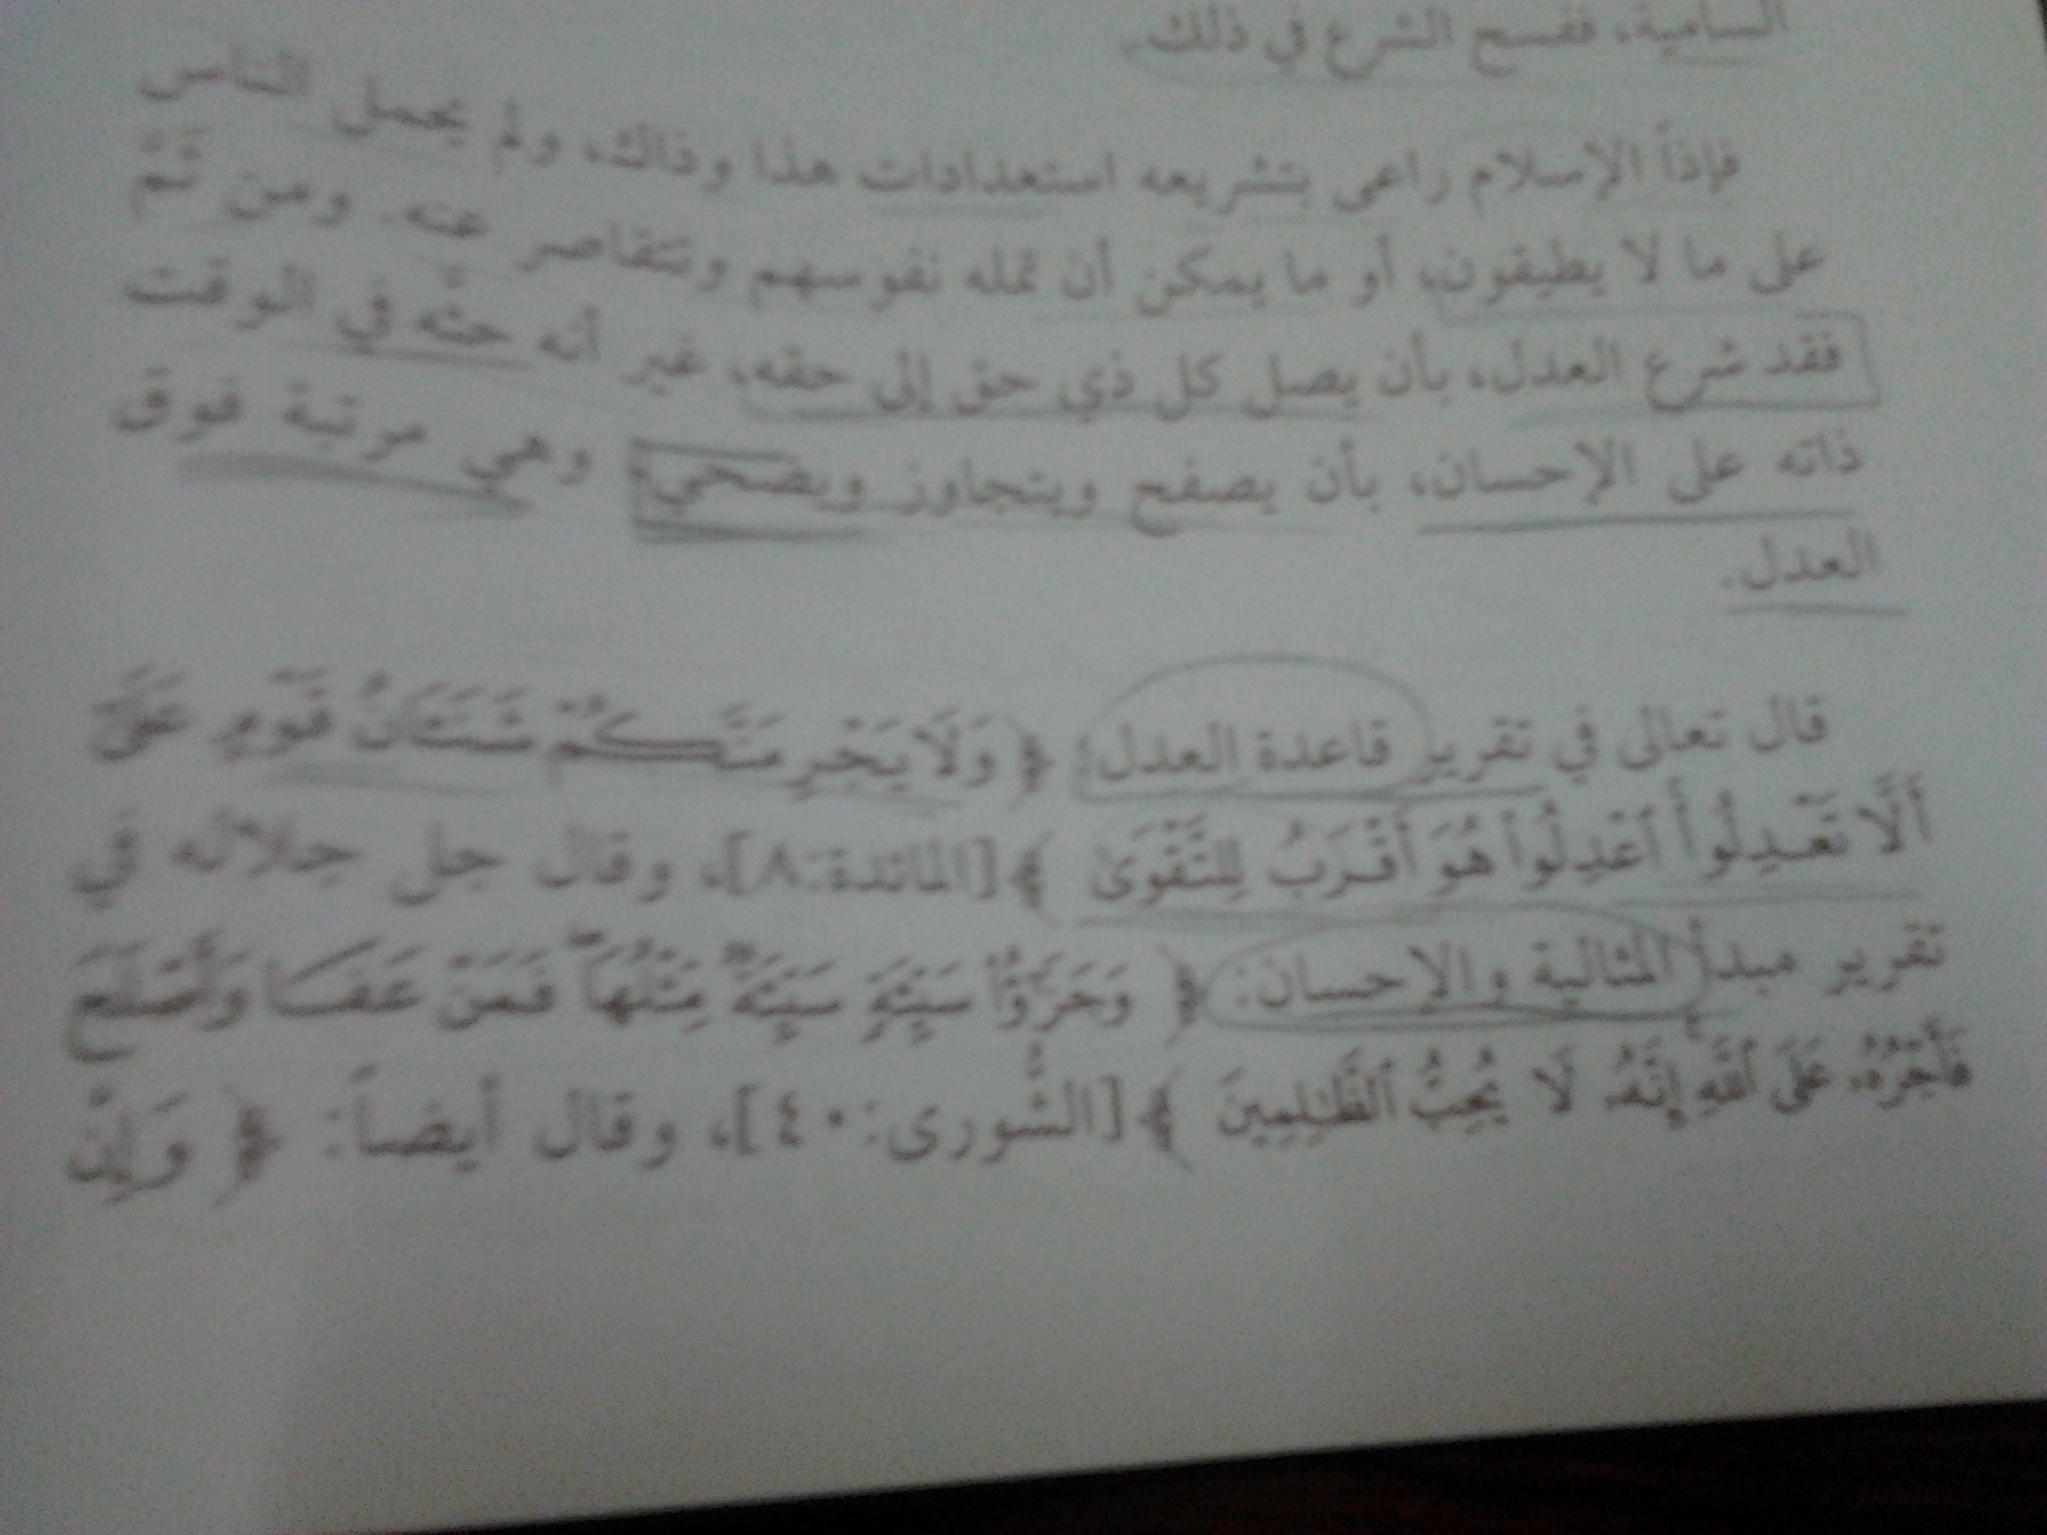 السامية، ففسح الشرع في ذلك.
فإذاً الإسلام راعى بتشريعه استعدادات هذا وذاك، ولم يحمل الناس
على ما لا يطيقون، أو ما يمكن أن تمله نفوسهم وتتقاصر عنه. ومن ثَمَّ
فقد شرع العدل، بأن يصل كل ذي حق إلى حقه، غير أنه حثَّه في الوقت
ذاته على الإحسان، بأن يصفح ويتجاوز ويضحي؛ وهي مرتبة فوق
العدل.
قال تعالى في تقرير قاعدة العدل: ﴿ وَلَا يَجْرِمَنَّكُمْ شَنَـَٔانُ قَوْمٍ عَلَىٰٓ
أَلَّا تَعْدِلُوا۟ ٱعْدِلُوا۟ هُوَ أَقْرَبُ لِلتَّقْوَىٰ ﴾[المائدة:٨]، وقال جل جلاله في
تقرير مبدأ المثالية والإحسان: ﴿ وَجَزَٰٓؤُا۟ سَيِّئَةٍ سَيِّئَةٌ مِّثْلُهَا فَمَنْ عَفَا وَأَصْلَحَ
فَأَجْرُهُۥ عَلَى ٱللَّهِ إِنَّهُۥ لَا يُحِبُّ ٱلظَّـٰلِمِينَ ﴾[الشُّورى:٤٠]، وقال أيضاً: ﴿ وَإِنْ